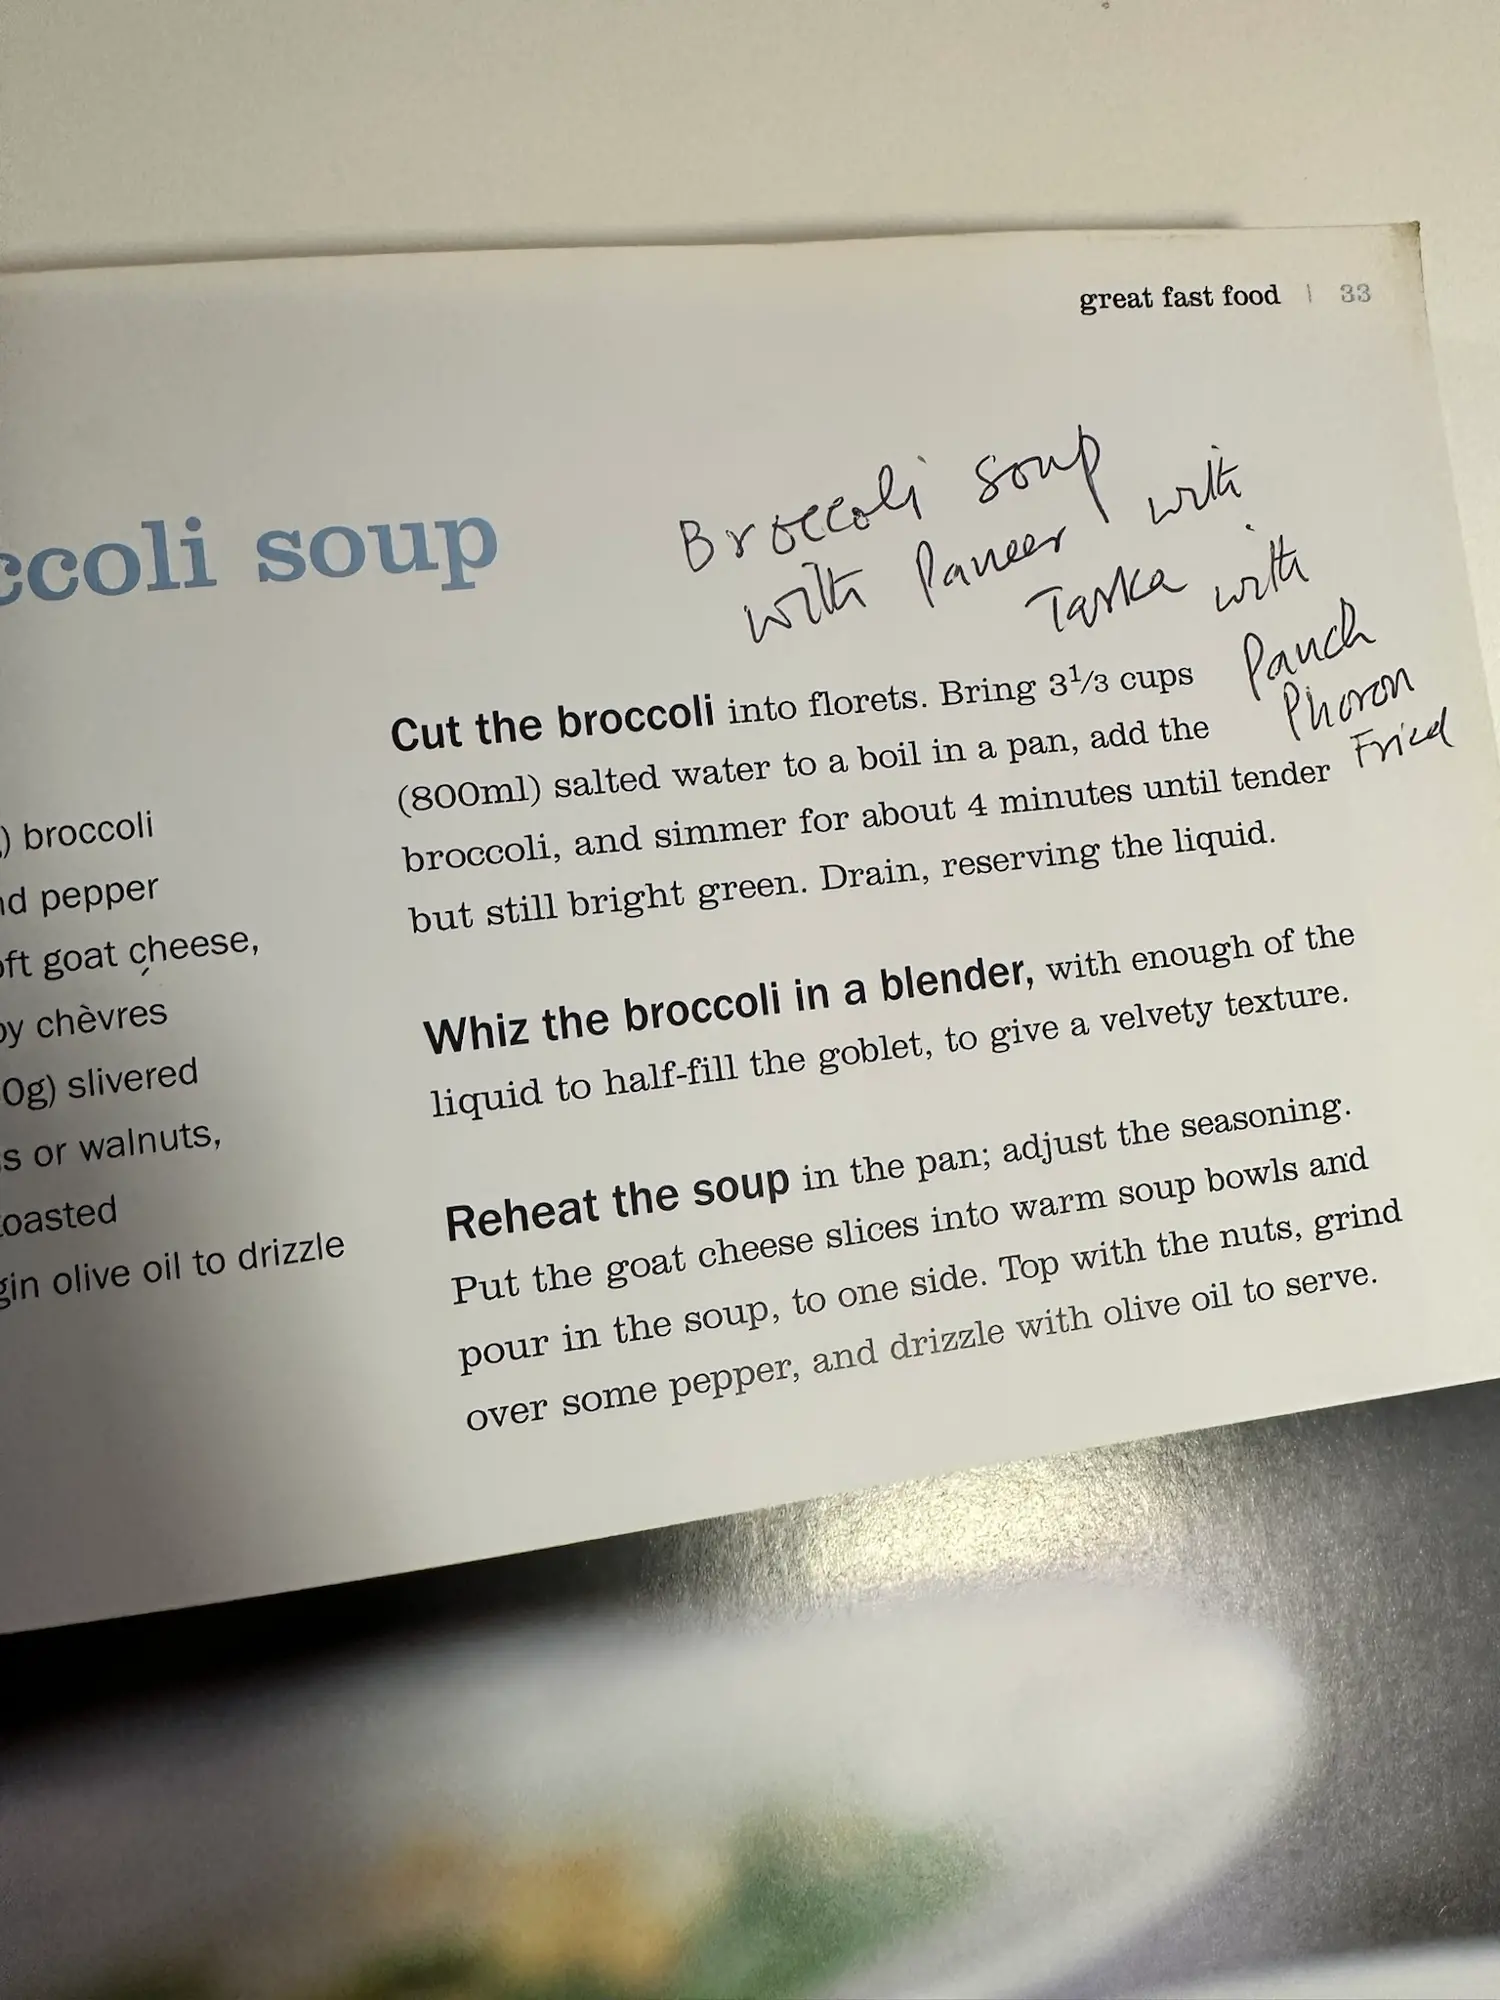 great fast food | 33
ccoli soup
Broccoli soup
with Paneer with
Tarka with
Panch
Phoron
Fried
) broccoli
nd pepper
oft goat cheese,
by chèvres
0g) slivered
s or walnuts,
toasted
gin olive oil to drizzle
Cut the broccoli into florets. Bring 3⅓ cups
(800ml) salted water to a boil in a pan, add the
broccoli, and simmer for about 4 minutes until tender
but still bright green. Drain, reserving the liquid.
Whiz the broccoli in a blender, with enough of the
liquid to half-fill the goblet, to give a velvety texture.
Reheat the soup in the pan; adjust the seasoning.
Put the goat cheese slices into warm soup bowls and
pour in the soup, to one side. Top with the nuts, grind
over some pepper, and drizzle with olive oil to serve.